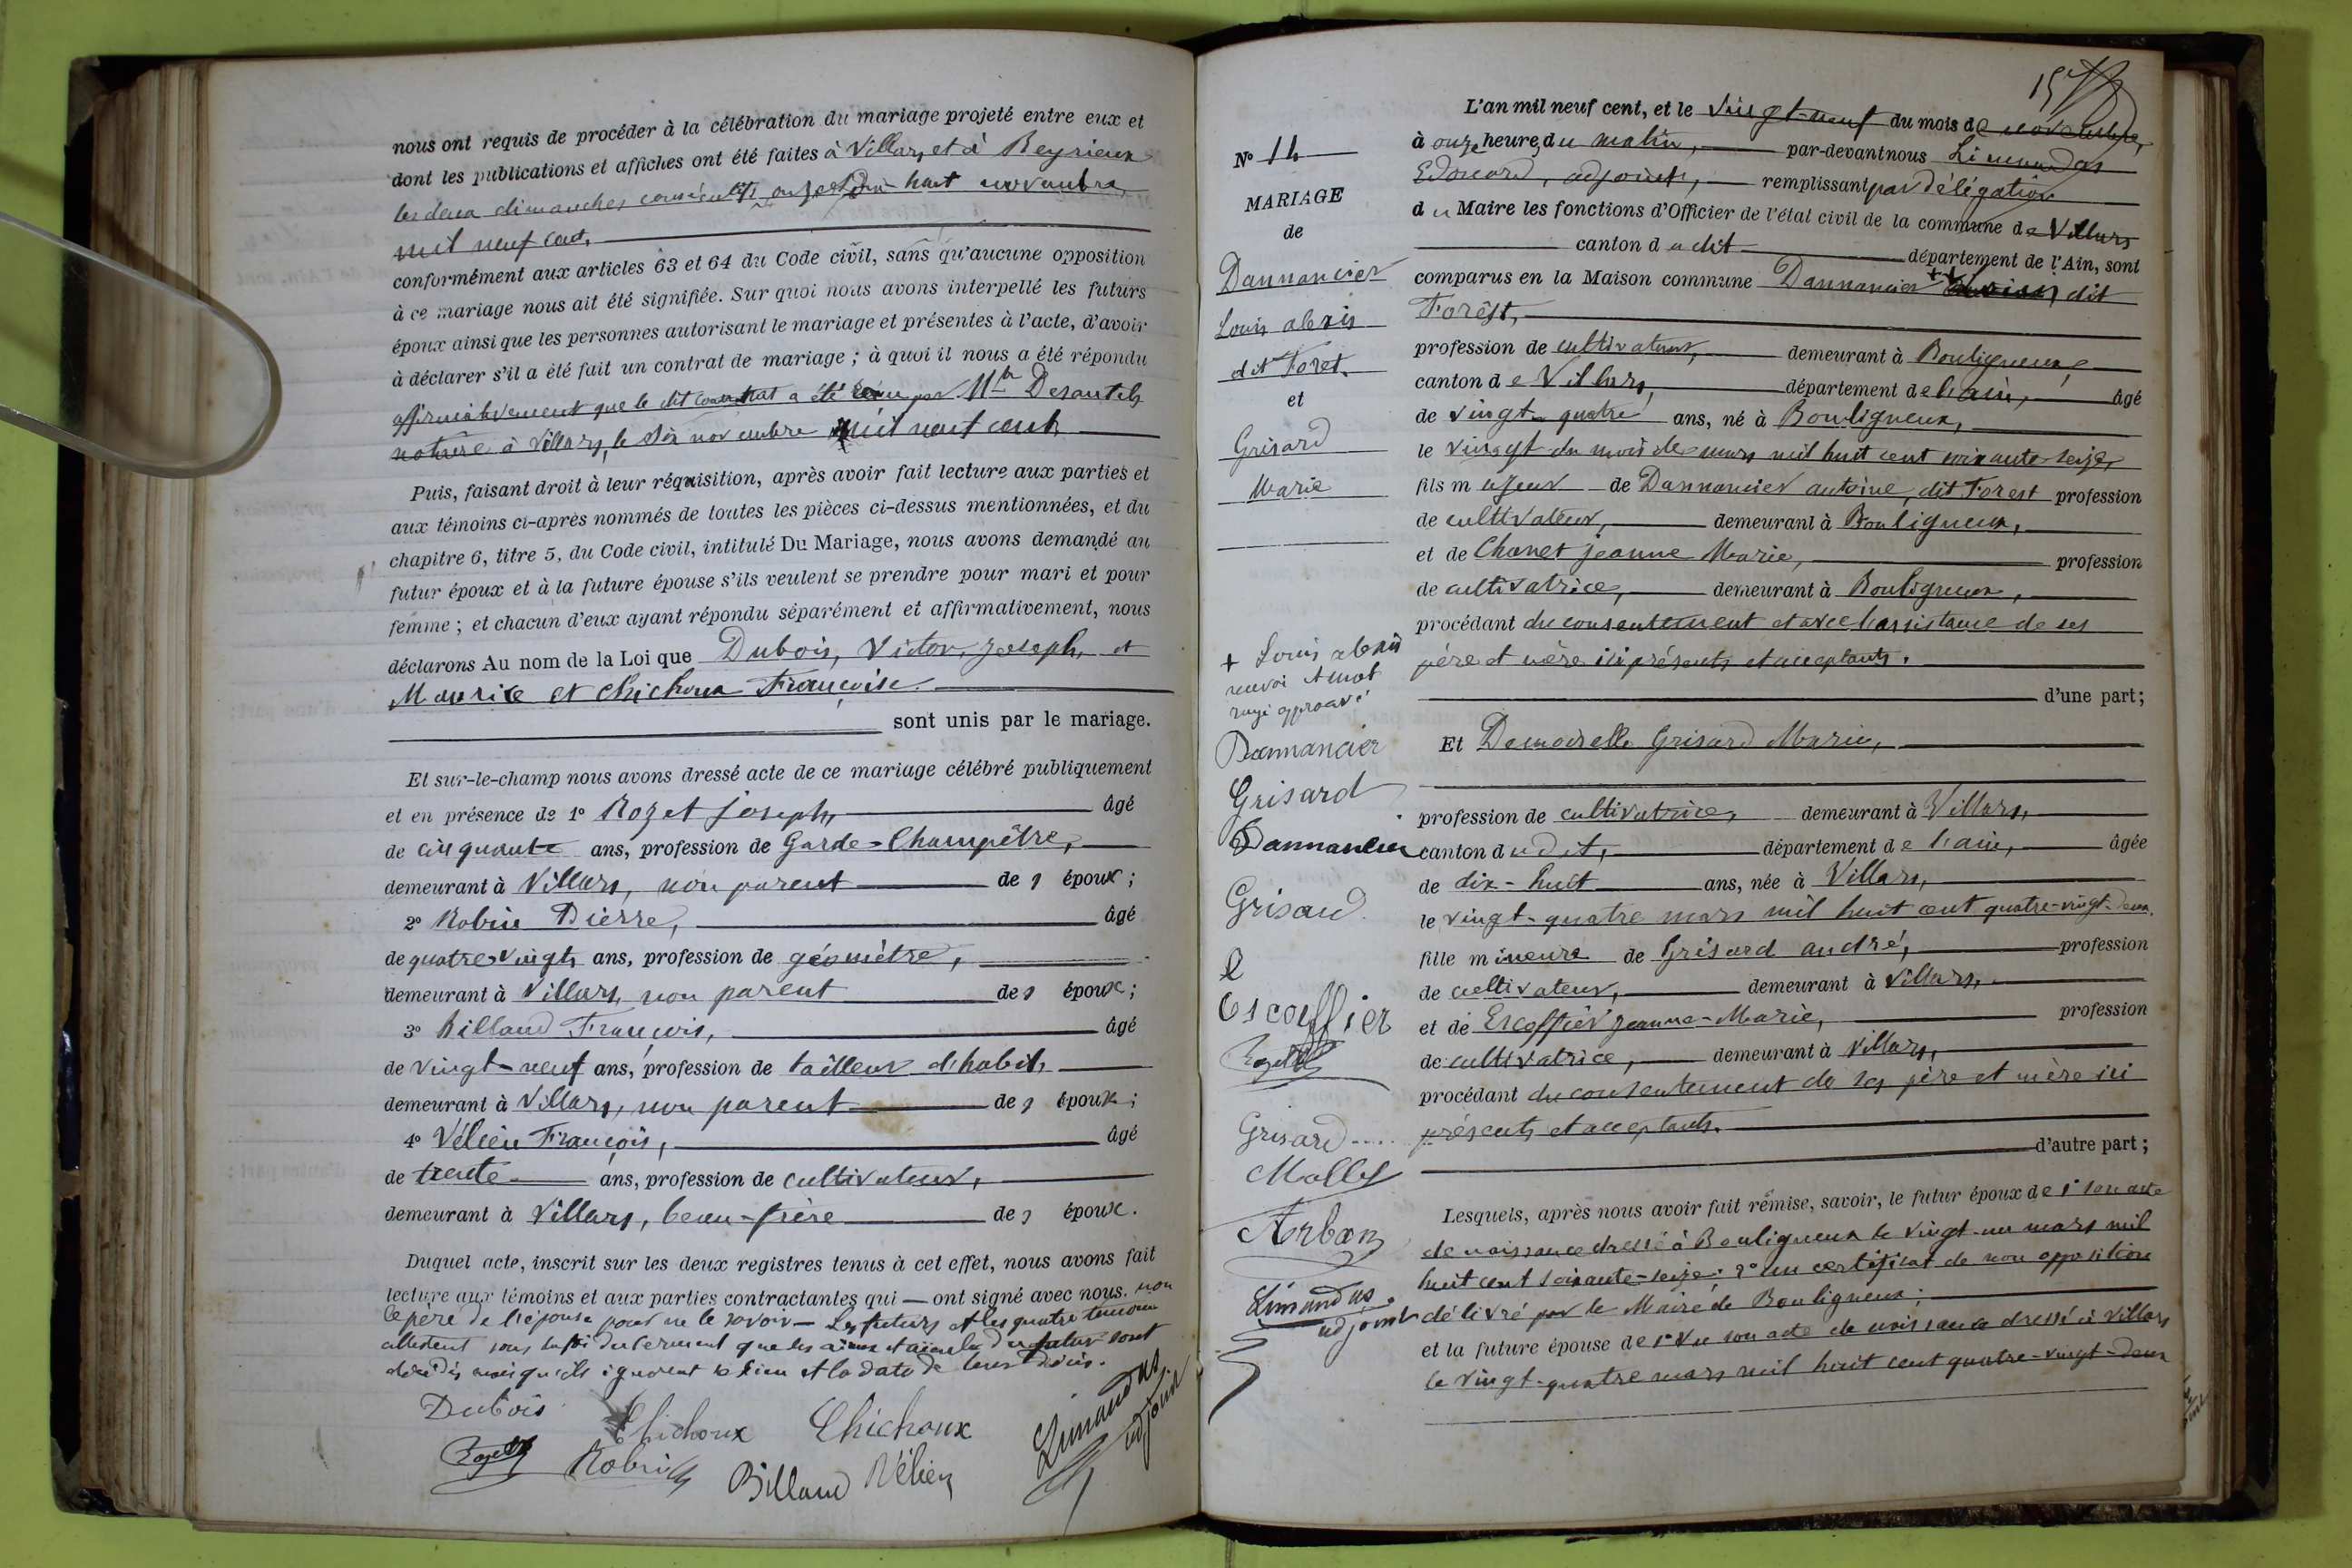 nous ont requis de procéder à la célébration du mariage projeté entre eux et
dont les publications et affiches ont été faites à Villars et à Reyrieux
les deux dimanches consécutifs onze et dix-huit novembre
mil neuf cent,
conformément aux articles 63 et 64 du Code civil, sans qu'aucune opposition
à ce mariage nous ait été signifiée. Sur quoi nous avons interpellé les futurs
époux ainsi que les personnes autorisant le mariage et présentes à l'acte, d'avoir
à déclarer s'il a été fait un contrat de mariage ; à quoi il nous a été répondu
affirmativement que le dit contrat a été reçu par Mtre Desautels
notaire à Villars, le dix novembre mil neuf cent.
Puis, faisant droit à leur réquisition, après avoir fait lecture aux parties et
aux témoins ci-après nommés de toutes les pièces ci-dessus mentionnées, et du
chapitre 6, titre 5, du Code civil, intitulé Du Mariage, nous avons demandé au
futur époux et à la future épouse s'ils veulent se prendre pour mari et pour
femme ; et chacun d'eux ayant répondu séparément et affirmativement, nous
déclarons Au nom de la Loi que Dubois, Victor, Joseph, et
Maurice et Chichoux Françoise.
sont unis par le mariage.
Et sur-le-champ nous avons dressé acte de ce mariage célébré publiquement
et en présence de 1° Rozet Joseph, âgé
de cinquante ans, profession de Garde-Champêtre,
demeurant à Villars, non parent des époux ;
2° Robin Pierre, âgé
de quatre vingts ans, profession de géomètre,
demeurant à Villars, non parent des époux ;
3° Billaud François, âgé
de vingt-neuf ans, profession de tailleur d'habits,
demeurant à Villars, non parent des époux ;
4° Vélien François, âgé
de trente ans, profession de cultivateur,
demeurant à Villars, beau-frère des époux.
Duquel acte, inscrit sur les deux registres tenus à cet effet, nous avons fait
lecture aux témoins et aux parties contractantes qui — ont signé avec nous. non
le père de l'épouse pour ne le savoir — Les futurs et les quatre témoins
attestent sous la foi du serment que les aïeux et aïeules du futur sont
décédés mais qu'ils ignorent le lieu et la date de leurs décès.
Dubois Chichoux Chichoux Limandas adjoint
Rozet Robin Billaud Vélien
N° 14
MARIAGE
de
Dannancier
Louis alexis
dit Foret.
et
Grisard
Marie
+ Louis alexis
renvoi et mot
rayé approuvé
Dannancier
Grisard
Dannancier
Grisard
e
Escouffier
Rozet
Grisard
Mallet
Arban
Limandas
adjoint
15
L'an mil neuf cent, et le vingt-neuf du mois de novembre,
à onze heures du matin, par-devant nous Limandas
Edouard, adjoint, remplissant par délégation
du Maire les fonctions d'Officier de l'état civil de la commune de Villars
canton dudit département de l'Ain, sont
comparus en la Maison commune Dannancier + dit
Forêst,
profession de cultivateur, demeurant à Bouligneux,
canton de Villars, département de l'ain, âgé
de vingt-quatre ans, né à Bouligneux,
le vingt du mois de mars mil huit cent soixante seize,
fils majeur de Dannancier antoine, dit Forest profession
de cultivateur, demeurant à Bouligneux,
et de Chanet Jeanne Marie, profession
de cultivatrice, demeurant à Bouligneux,
procédant du consentement et avec l'assistance de ses
père et mère ici présents et acceptants.
d'une part ;
Et Demoiselle Grisard Marie,
profession de cultivatrice, demeurant à Villars,
canton dudit, département de l'ain, âgée
de dix-huit ans, née à Villars,
le vingt-quatre mars mil huit cent quatre-vingt-deux,
fille mineure de Grisard andré, profession
de cultivateur, demeurant à Villars,
et de Escoffier Jeanne-Marie, profession
de cultivatrice, demeurant à Villars,
procédant du consentement de ses père et mère ici
présents et acceptants.
d'autre part ;
Lesquels, après nous avoir fait remise, savoir, le futur époux de 1° son acte
de naissance dressé à Bouligneux le vingt-un mars mil
huit cent soixante-seize ; 2° un certificat de non opposition
délivré par le Maire de Bouligneux ;
et la future épouse de 1° Vu son acte de naissance dressé à Villars
le vingt-quatre mars mil huit cent quatre-vingt-deux